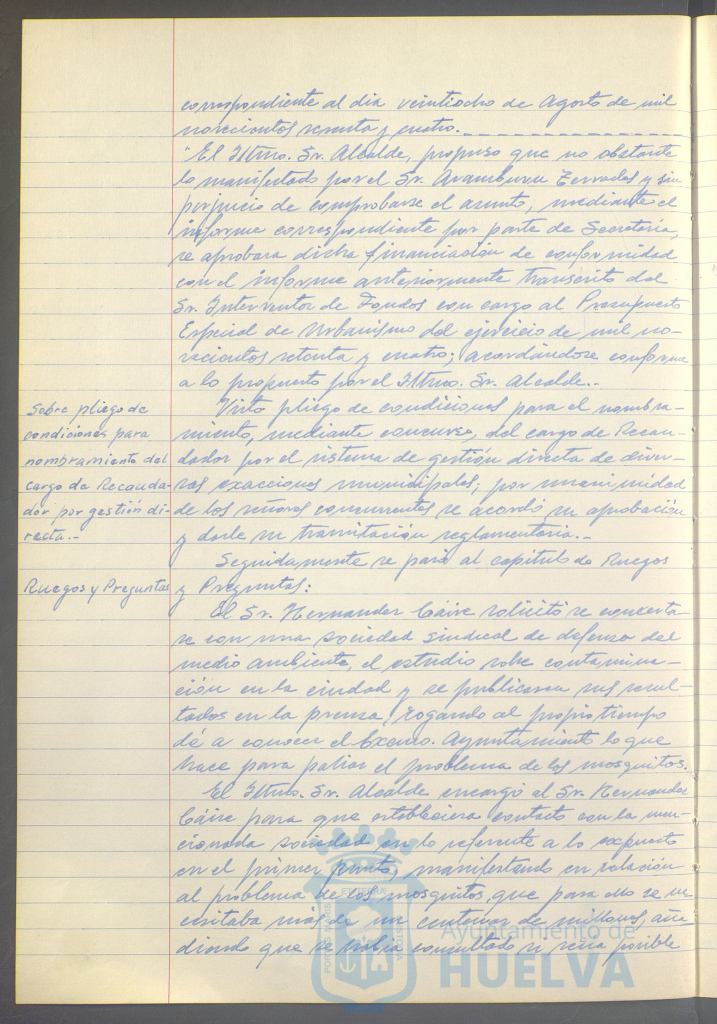 correspondiente al dia veintiocho de Agosto de mil
novecientos setenta y cuatro.
"El Iltmo. Sr. Alcalde, propuso que no obstante
lo manifestado por el Sr. Aramburu Terrades y sin
perjuicio de comprobarse el asunto, mediante el
informe correspondiente por parte de Secretaria,
se aprobara dicha financiación de conformidad
con el informe anteriormente transcrito del
Sr. Interventor de Fondos con cargo al Presupuesto
Especial de Urbanismo del ejercicio de mil no-
vecientos setenta y cuatro; acordándose conforme
a lo propuesto por el Iltmo. Sr. Alcalde.-
Sobre pliego de
condiciones para
nombramiento del
cargo de Recauda-
dor por gestión di-
recta.-
Visto pliego de condiciones para el nombra-
miento, mediante concurso, del cargo de Recau-
dador por el sistema de gestión directa de diver-
sas exacciones municipales; por unanimidad
de los señores concurrentes se acordó su aprobación
y darle su tramitación reglamentaria.-
Seguidamente se pasó al capítulo de Ruegos
Ruegos y Preguntas
y Preguntas:
El Sr. Hernandez Cáire solicitó se concerta-
se con una sociedad sindical de defensa del
medio ambiente, el estudio sobre contamina-
ción en la ciudad y se publicasen sus resul-
tados en la prensa, rogando al propio tiempo
dé a conocer el Excmo. Ayuntamiento lo que
hace para paliar el problema de los mosquitos.
El Iltmo. Sr. Alcalde encargó al Sr. Hernandez
Cáire para que estableciera contacto con la men-
cionada sociedad en lo referente a lo expuesto
en el primer punto, manifestando en relación
al problema de los mosquitos, que para ello se ne-
cesitaba más de un centenar de millones, aña-
diendo que se había consultado si sería posible
Ayuntamiento de
HUELVA